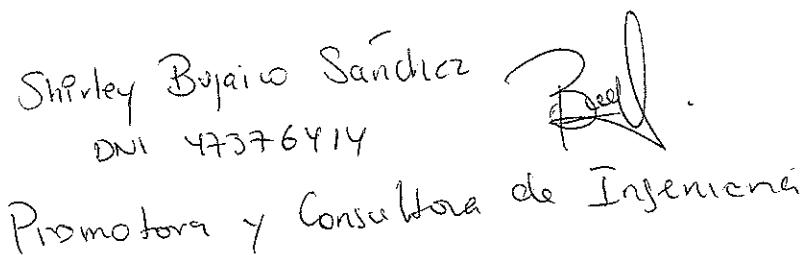 Shirley Bujaico Sánchez
DNI 47376414
Promotora y Consultora de Ingeniería